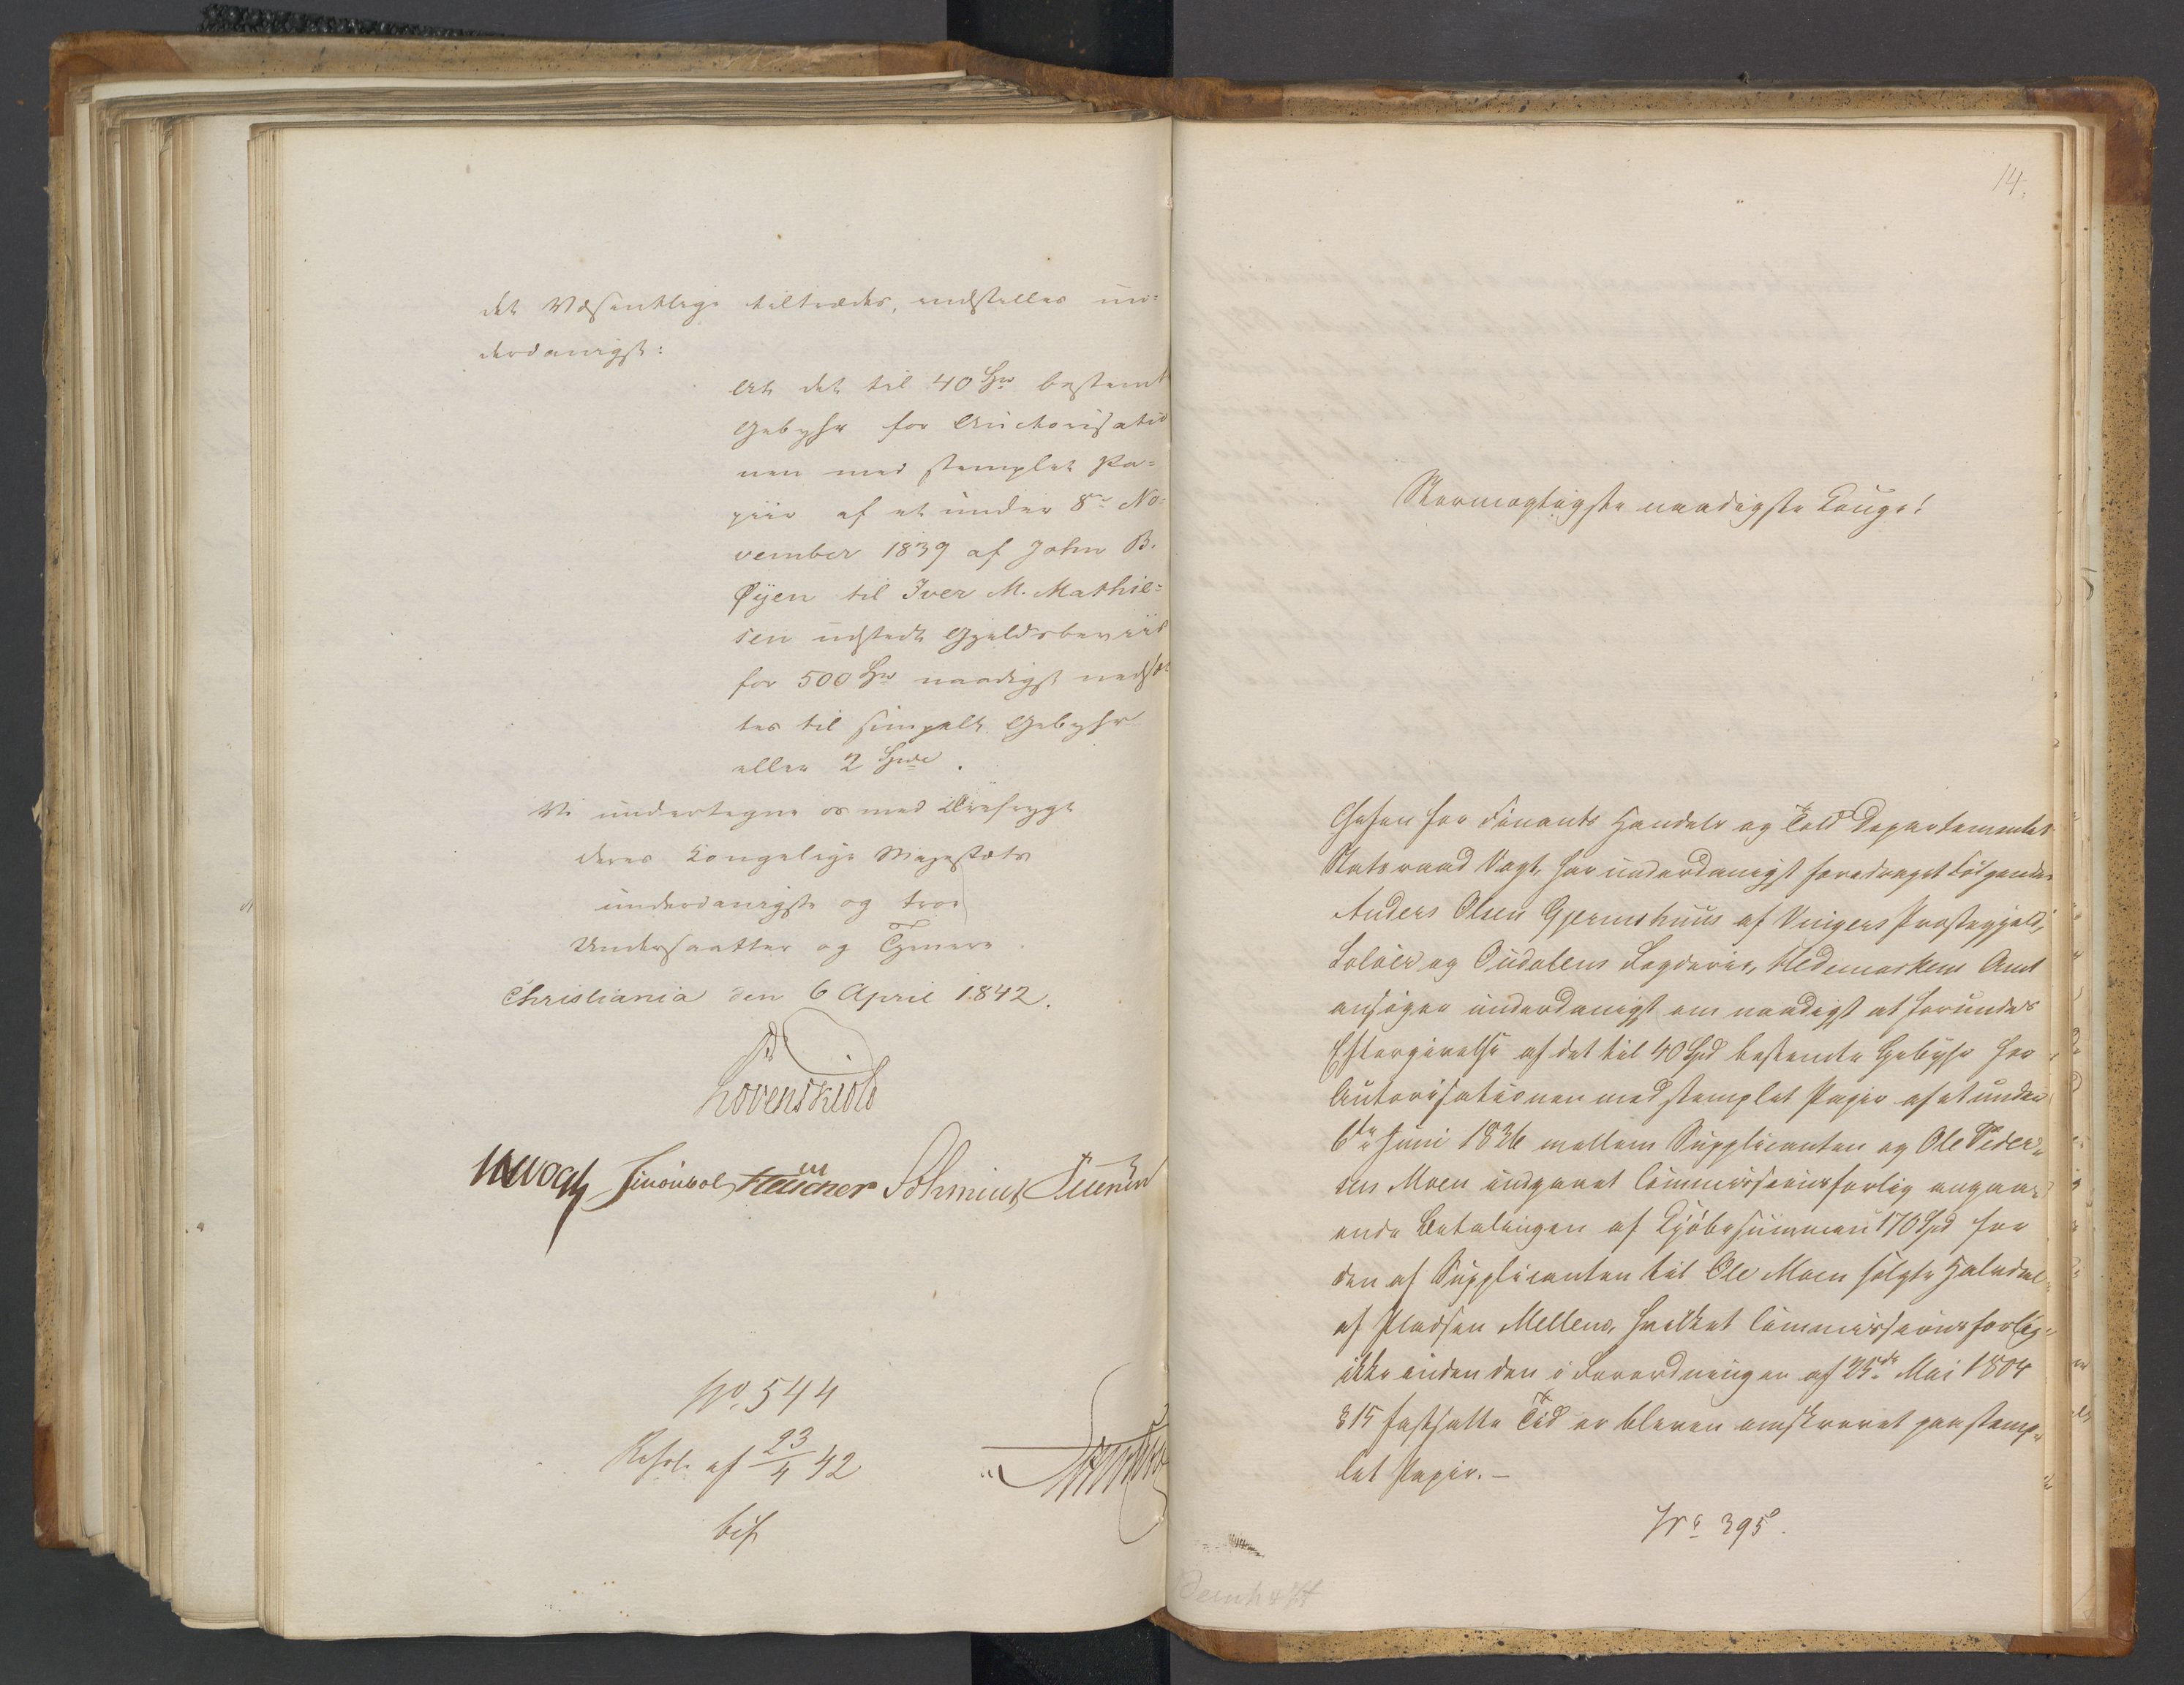 det Væsentlige tiltrædes, indstilles un-
derdanigst:
At det til 40 Spd bestemte
Gebyhr for Auctorisatio
nen med stemplet Pa-
piir af et under 8de No-
vember 1839 af John B.
Øyen til Iver M. Mathie-
sen udstedt Gjeldsbeviis
for 500 Spd naadigst nedsæt
tes til simpelt Gebyhr
eller 2 Spd.
Vi undertegne os med Ærefrygt
deres Kongelige Majestæts
underdanigste og troe
Undersaatter og Tjenere.
Christiania den 6 April 1842.
Løvenskiold
Vogt
No. 544
Resol. af 23/4 42
bif.
14.
Stormægtigste naadigste Konge!
Chefen for Finants Handels og Told Departementet
Statsraad Vogt, har underdanigst foredraget Følgende:
Anders Olsen Gjermshuus af Vingers Præstegjeld,
Soløer og Oudalens Fogderie, Hedemarkens Amt
ansøger underdanigst om naadigst at forundes
Eftergivelse af det til 40 Spd bestemte Gebyhr for
Autorisationen med stemplet Papir af et under
6te Juni 1836 mellem Supplicanten og Ole Peder-
sen Moen indgaaet Commissionsforlig angaa-
ende Betalingen af Kjøbesummen 170 Spd for
den af Supplicanten til Ole Moen solgte Halvdel
af Pladsen Mellem, hvilket Commissionsforlig
ikke inden den i Forordningen af 25de Mai 1804
§ 15 fastsatte Tid er bleven omskrevet paa stemp-
let Papir.-
No 395.